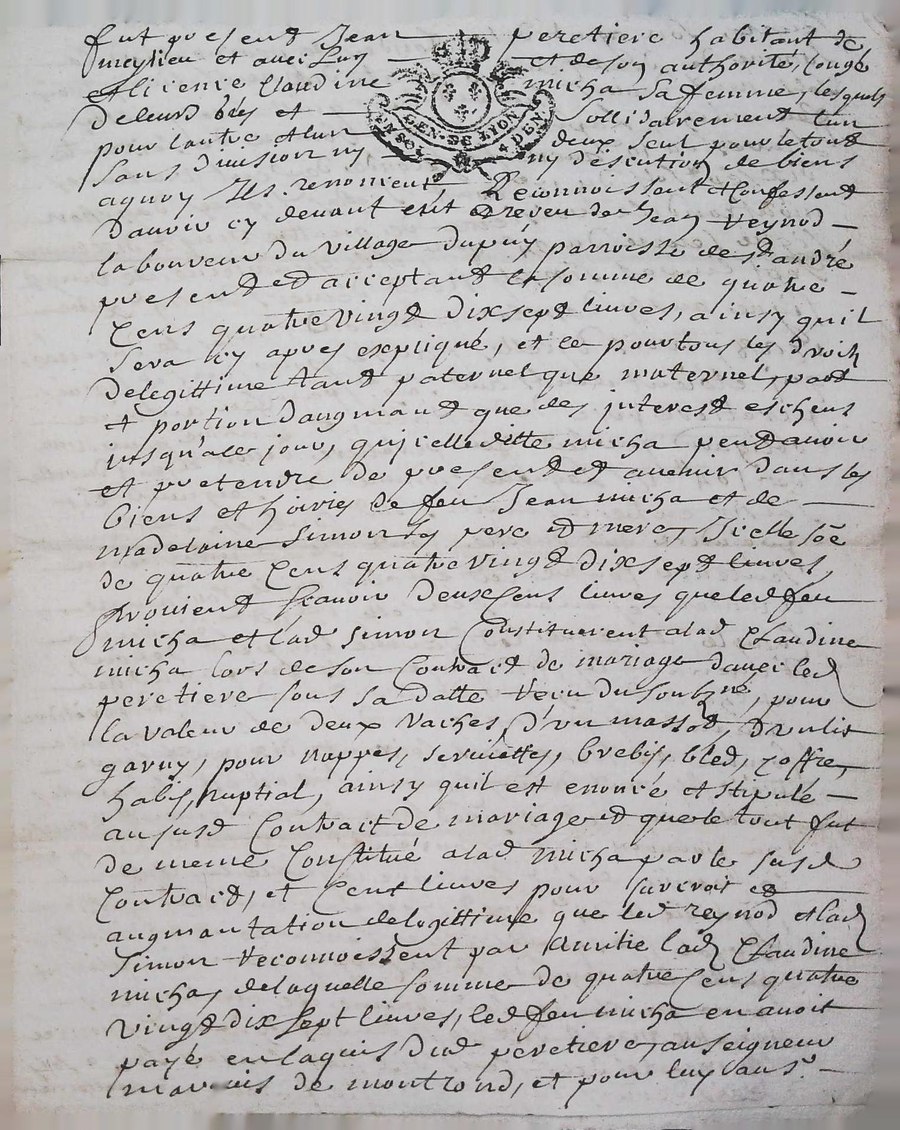 fut present Jean peretiere habitant de
meylieu et avec luy et de son authorité, congé
et licence Claudine micha sa femme, lesquels
de leurs grés et sollidairement l'un
pour lautre et lun deux seul pour le tout
sans division ny ny discution de biens
aquoy Ils renoncent, Reconnoissant et Confessent
d'avoir cy devant erüt et reveu de Jean reynod
laboureur du village dupuy parroisse de st andré
present et acceptant la somme de quatre
Cens quatre vingt dix sept livres, ainsy quil
sera cy apres expliqué, et ce pour tous les droits
de legittime tant paternel que maternel, part
et portion daugmant que des interest escheus
jusqu'a ce jour, qu'icelle ditte micha peut avoir
et pretendre de present et avenir dans les
biens et hoiries de feu Jean micha et de
madelaine simon ses pere et mere, Icelle sõe
de quatre Cens quatre vingt dix sept livres,
Provient scavoir deux Cens livres que led feu
micha et lad simon Constituerent a lad Claudine
micha lors de son Contract de mariage d'avec led
peretiere sous sa datte receu du soubzné, pour
la valeur de deux vaches, d'un d'un lit
garny, pour nappes, serviettes, brebis, bled, coffre,
habis nuptial, ainsy quil est enoncé et stipulé
au susd Contract de mariage et que le tout fut
de meme Constitué a lad micha par le susd
Contract, et Cent livres pour surcroit et
augmantation de legittime que led reynod et lad
simon reconnoissent par amitié lad Claudine
micha, de laquelle somme de quatre Cens quatre
vingt dix sept livres, led feu micha en avoit
payé en laquis dud peretiere, au seigneur
marquis de montrond, et pour luy au sr
GEN. DE LYON
UN SOL 4 DEN